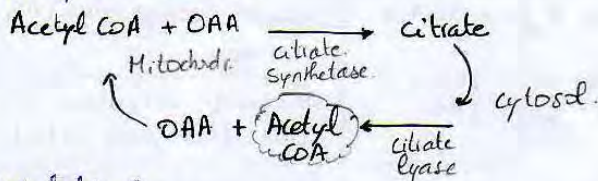 Acetyl CoA + OAA → citrate
Mitochdr.
citrate
synthetase.
cytosol.
OAA + Acetyl
CoA
citrate
lyase